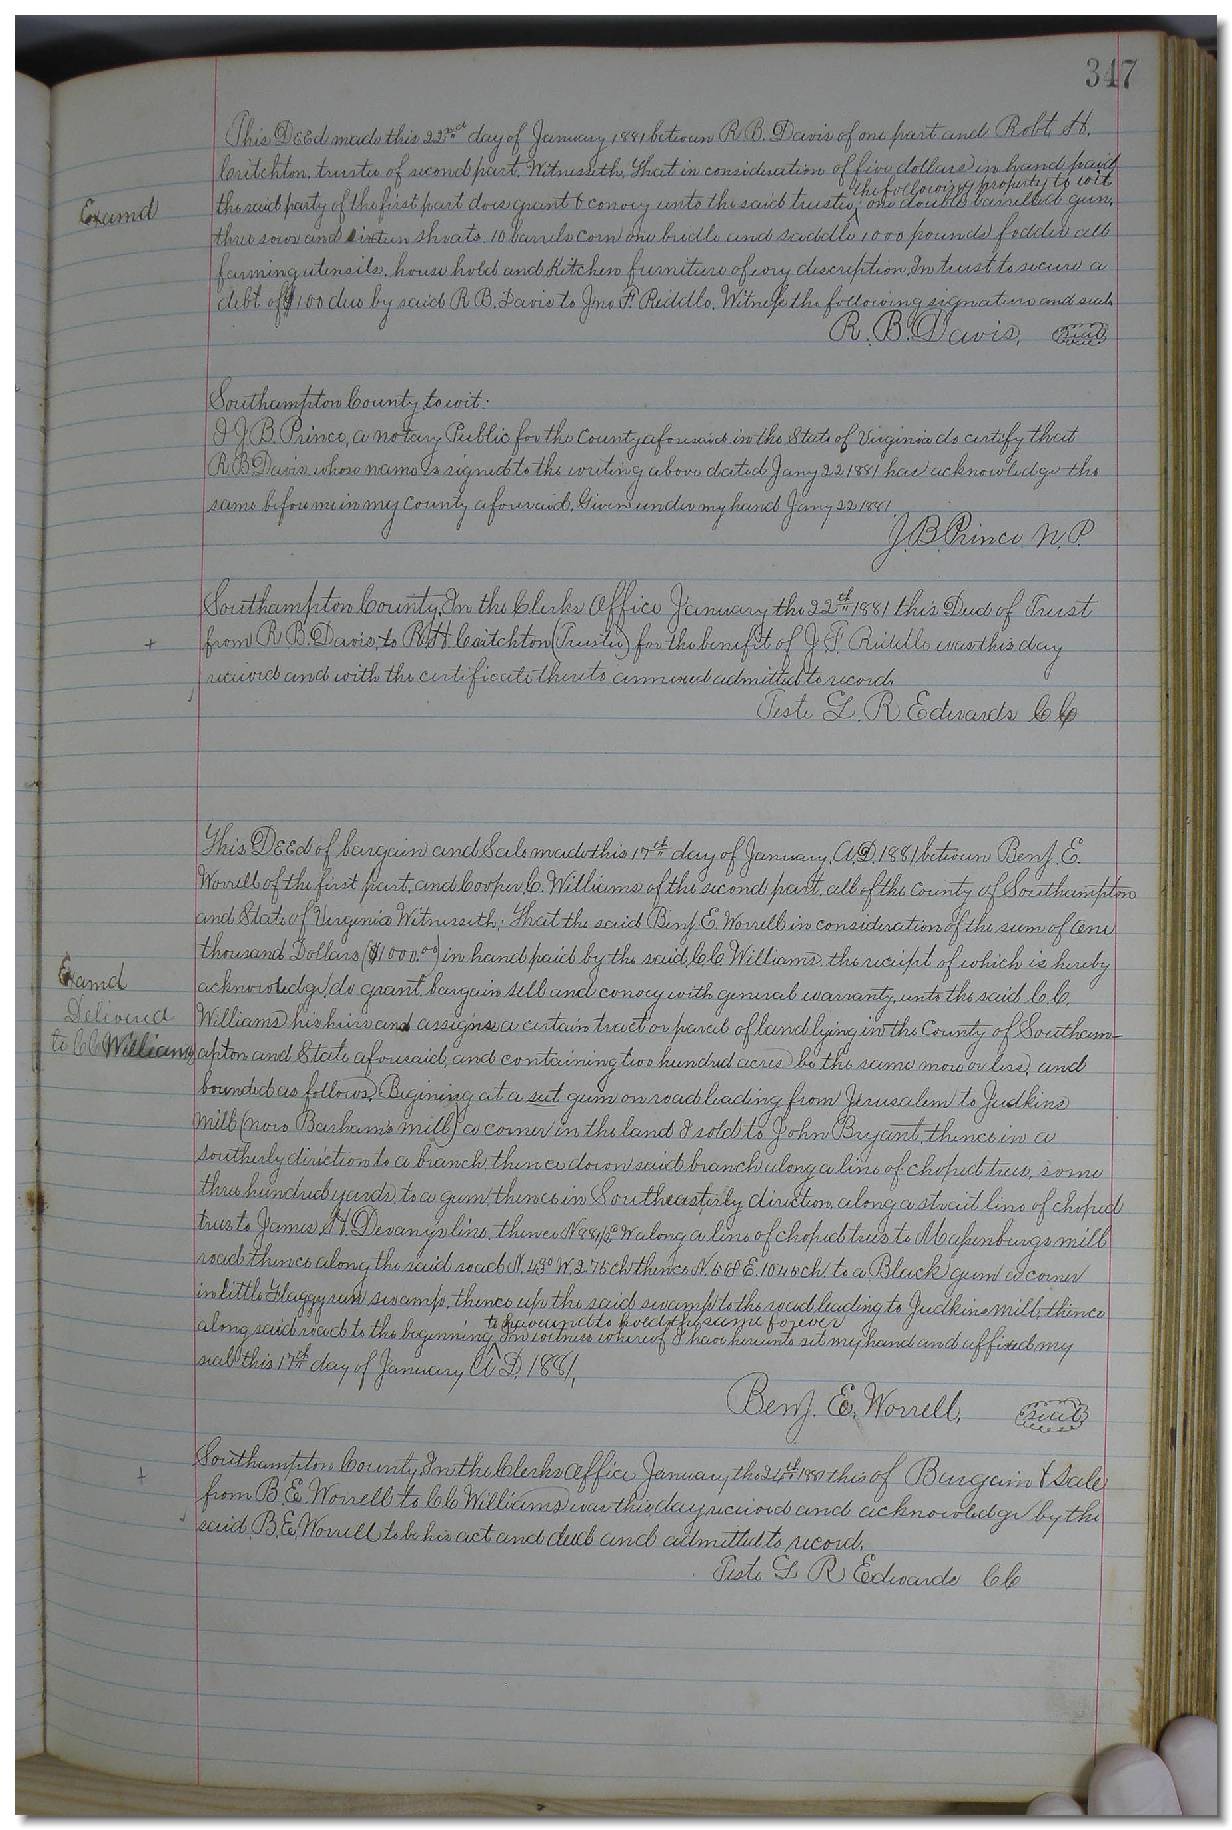 347
This DEEd made this 22nd day of January 1881 between R B. Davis of one part and Robt. H.
Critchton, trustee of second part, Witnesseth, That in consideration of five dollars in hand paid
the following property to wit
Examd
the said party of the first part does grant & convey unto the said trustee, one double barrelled gun,
three sows and sixteen shoats. 10 barrels corn one bridle and saddle 1000 pounds fodder all
farming utensils, house hold and Kitchen furniture of evry descreption, In trust to secure a
debt of $100 due by said R B. Davis to Jno F. Riddle. Witness the following signature and seal,
R. B. Davis, Seal
Southampton County, to wit:
I J. B. Prince, a notary Public for the County aforesaid in the State of Virginia do certify that
R B Davis whose name is signed to the writing above dated Jany 22 1881 has acknowledge the
same before me in my county aforesaid. Given under my hand Jany 22 1881
J. B. Prince N. P.
Southampton County, In the Clerks Office January the 22th 1881 this Deed of Trust
+ from R B. Davis, to R. H. Critchton (Trustee) for the benefit of J F. Riddle was this day
received and with the certificate thereto annexed admitted to record.
Teste L. R Edwards CC
This DEEd of bargain and Sale made this 17th day of January, A,D, 1881 between Benj. E.
Worrell of the first part, and Cooper C. Williams of the second part, all of the County of Southampton
and State of Virginia Witnesseth; That the said Benj. E. Worrell in consideration of the sum of one
thousand Dollars ($1000.00) in hand paid by the said C C Williams, the receipt of which is hereby
Examd
acknowledge, do grant, bargain sell and convey with general warranty, unto the said C. C.
Delivered
Williams his heirs and assigns a certain tract or parcel of land lying in the County of Southam-
to C C Williams
apton and State aforesaid, and containing two hundred acres be the same more or less, and
bounded as follows, Begining at a sut gum on road leading from Jerusalem to Judkins
Mill (now Barham's mill) a corner in the land I sold to John Bryant, thence in a
southerly direction to a branch, thence down said branch along a line of choped trees, some
three hundred yards, to a gum, thence in Southeasterly direction, along a strait line of choped
trees to James H. Devany's line, thence N 88½° W along a line of choped trees to Massenburgs mill
road thence along the said road N. 43° W. 2.75 ch thence N 508 E. 10.40 ch to a Black gum a corner
in little Flaggy run swamp, thence up the said swamp to the road leading to Judkins Mill, thence
to have and to hold the same forever
along said road to the beginning, In witness whereof I have hereunto set my hand and affixed my
seal this 17th day of January A. D. 1881,
Benj. E. Worrell, Seal
Southampton County, In the Clerks Office January the 24th 1881 this of Bargain & Sale
+ from B. E. Worrell to C C Williams was this day received and acknowledge by the
said B. E. Worrell to be his act and deed and admitted to record.
Teste L R Edwards CC